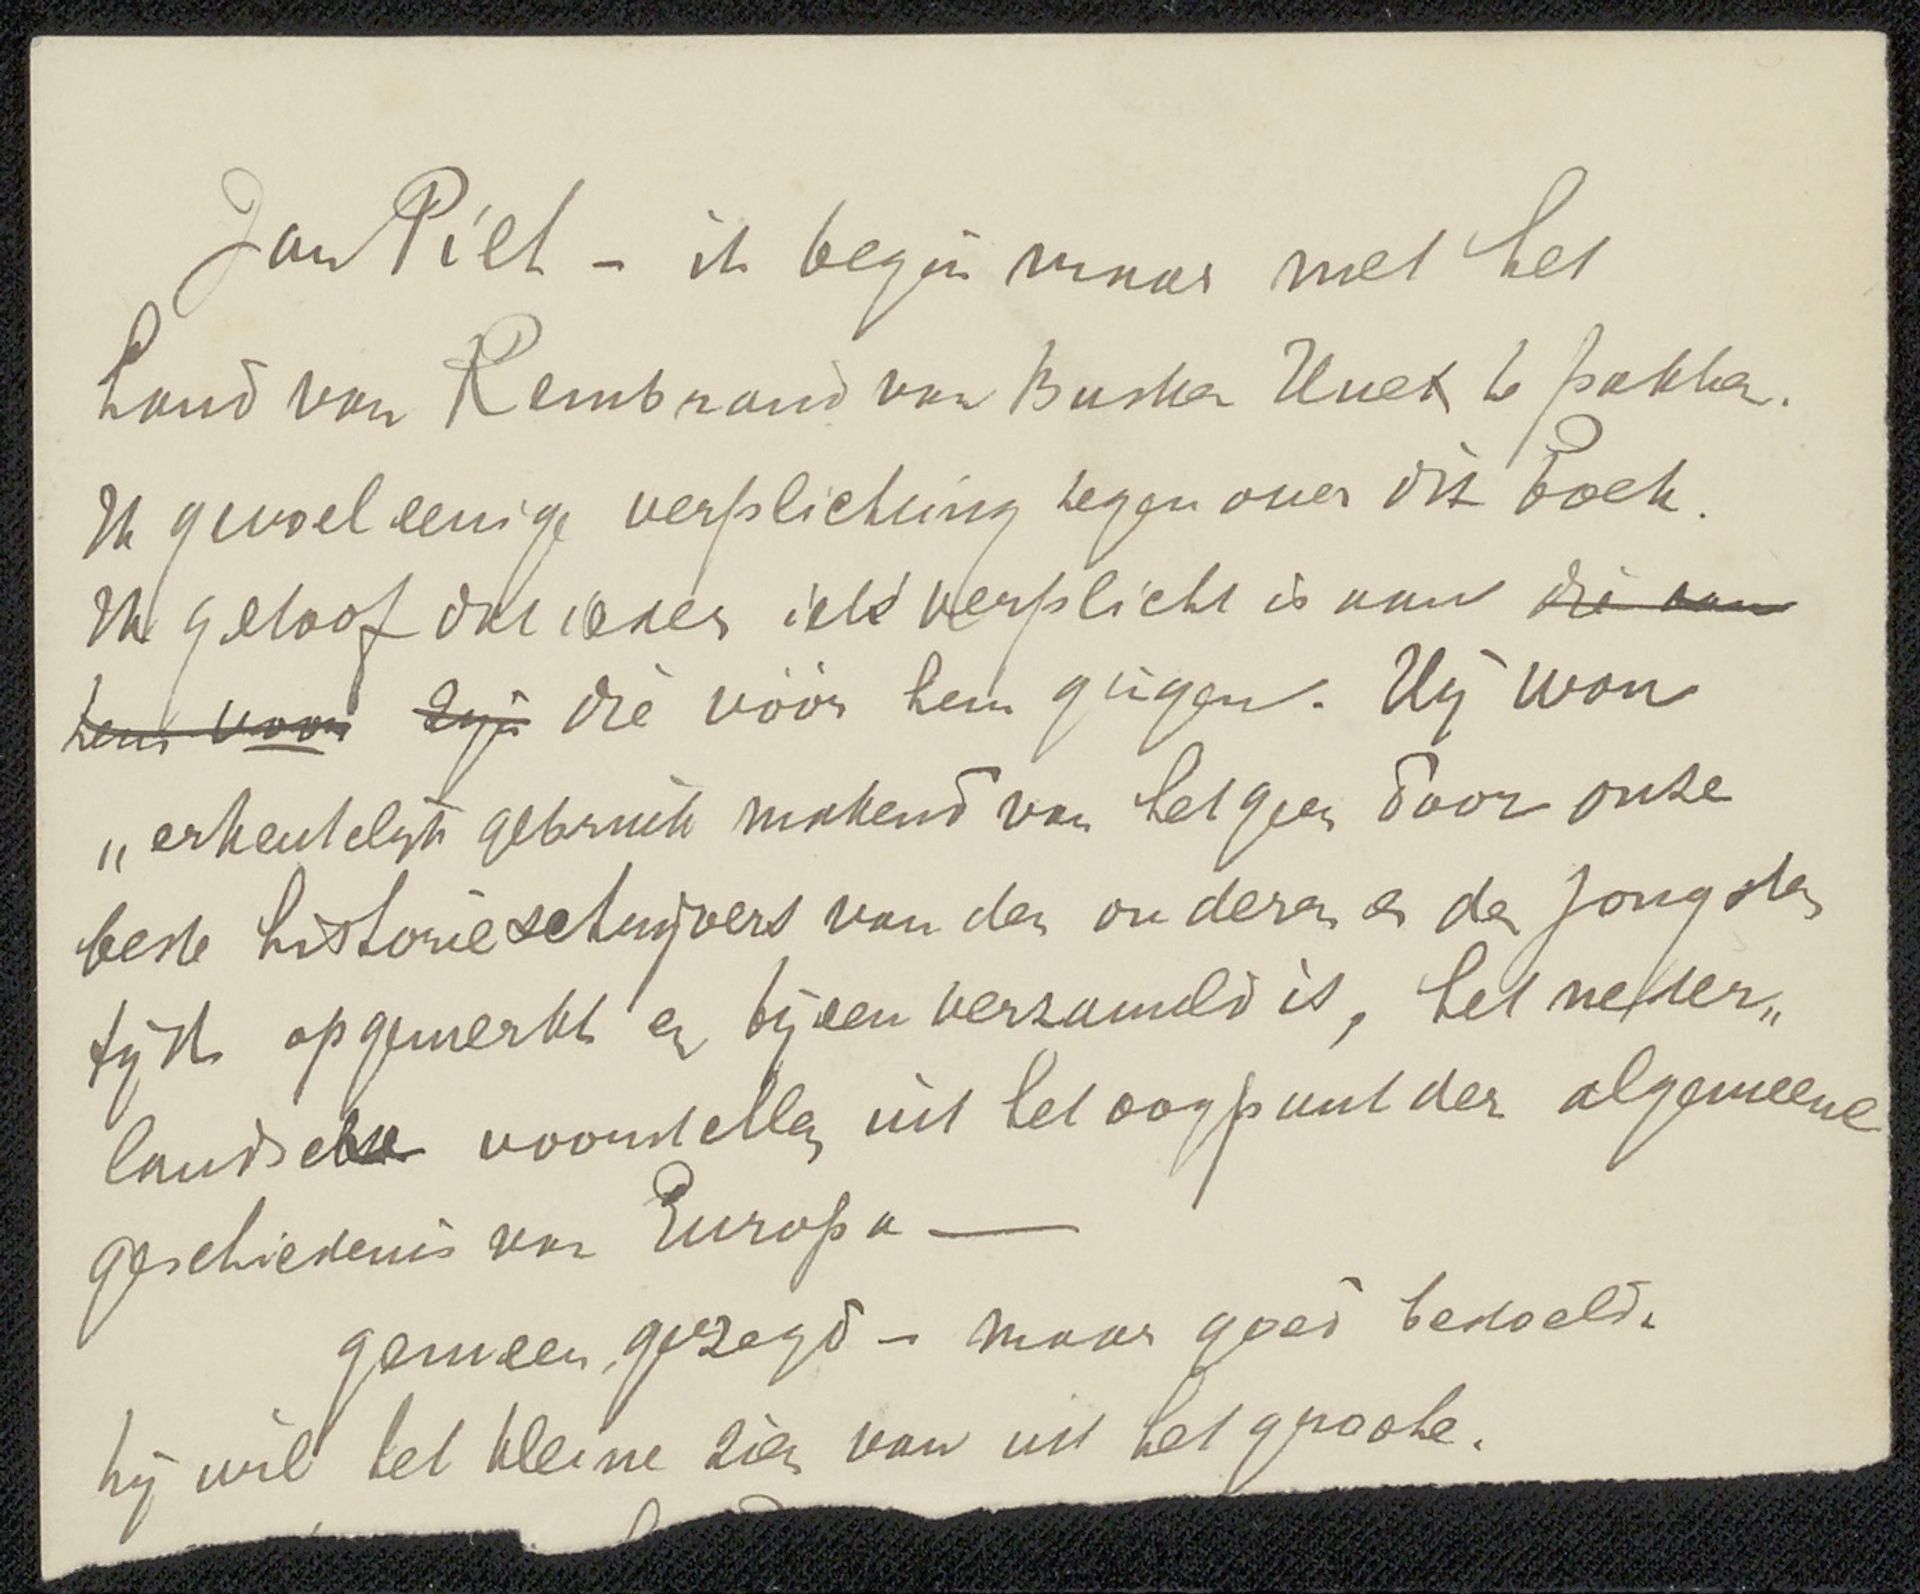 Jan Piet – ik begin maar met het
Land van Rembrand van Busken Huet te pakken.
Ik gevoel eenige verplichting tegenover dit boek.
Ik geloof dat ieder iets verplicht is aan die aan
hem voor zijn die vóór hem gingen. Hij wou
„erkentelijk gebruik makend van hetgeen door onze
beste historieschrijvers van den ouderen en den jongsten
tijd opgemerkt en bijeenverzameld is, het neder„
landsche voorstellen uit het oogpunt der algemeene
geschiedenis van Europa —
gemeen gezegd – maar goed bedoeld.
hij wil het kleine zien van uit het groote.